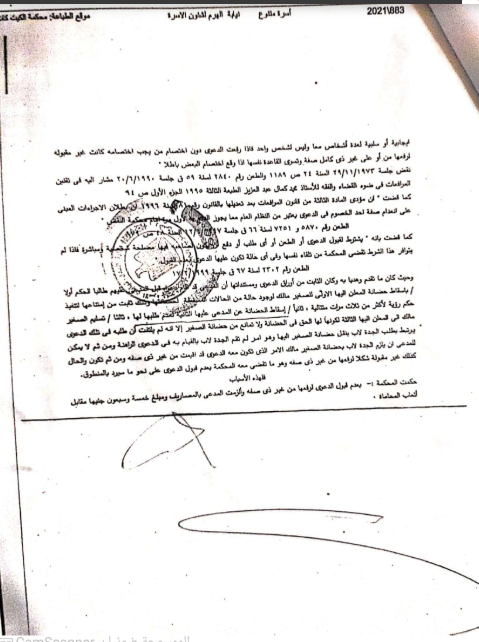 2021\883 أسرة متنوع نيابة الهرم لشئون الاسرة موقع الطباعة: محكمة الجيزة
ايجابية أو سلبية لعدة أشخاص معا وليس لشخص واحد فاذا رفعت الدعوى دون اختصام من يجب اختصامه كانت غير مقبوله
لرفعها من أو على غير ذي كامل صفة وتسرى القاعدة نفسها اذا وقع اختصام البعض باطلا "
نقض جلسة 29/11/1973 السنة 24 ص 1189 والطعن رقم 2840 لسنة 59 ق جلسة 20/6/1990 مشار اليه فى تقنين
المرافعات فى ضوء القضاء والفقه للأستاذ محمد كمال عبد العزيز الطبعة الثالثة 1995 الجزء الأول ص 94
كما قضت " ان مؤدى المادة الثالثة من قانون المرافعات بعد تعديلها بالقانون رقم 1996 بطلان الاجراءات المبنى
على انعدام صفة احد الخصوم فى الدعوى يعتبر من النظام العام مما يجوز محكمة النقض "
الطعن رقم 5870 و 7251 لسنة 66 ق جلسة
كما قضت بانه " يشترط لقبول الدعوى أو الطعن أو أى طلب أو دفع مصلحة شخصية ومباشرة فاذا لم
يتوافر هذا الشرط تقضى المحكمة من تلقاء نفسها وفى أى حالة تكون عليها الدعوى بعدم القبول "
الطعن رقم 2302 لسنة 67 ق جلسة
وحيث كان ما تقدم وهديا به وكان الثابت من أوراق الدعوى ومستنداتها أن المدعى طالبا الحكم أولا
/ باسقاط حضانة المعلن اليها الاولى للصغير مالك لوجود حالة من الحالات وذلك ثبت من إمتناعها لتنفيذ
حكم رؤية لأكثر من ثلاث مرات متتالية ، ثانيا / إسقاط الحضانة عن المدعى عليها الثانية لعدم طلبها لها ، ثالثا / تسليم الصغير
مالك الى المعلن اليها الثالثة لكونها لها الحق فى الحضانة ولا تمانع من حضانة الصغير إلا انه لم يلتفت أن طلبه فى تلك الدعوى
يرتبط بطلب الجدة لاب بنقل حضانة الصغير اليها وهو امر لم تقم الجدة لاب بالقيام به فى الدعوى الراهنة ومن ثم لا يمكن
للمدعى ان يلزم الجدة لاب بحضانة الصغير مالك الامر الذى تكون معه الدعوى قد اقيمت من غير ذى صفه ومن ثم تكون والحال
كذلك غير مقبولة شكلا لرفعها من غير ذى صفه وهو ما تقضى معه المحكمة بعدم قبول الدعوى على نحو ما سيرد بالمنطوق.
فلهذه الأسباب
حكمت المحكمة :- بعدم قبول الدعوى لرفعها من غير ذى صفه وألزمت المدعى بالمصاريف ومبلغ خمسة وسبعون جنيها مقابل
أتعاب المحاماة .
CamScanner